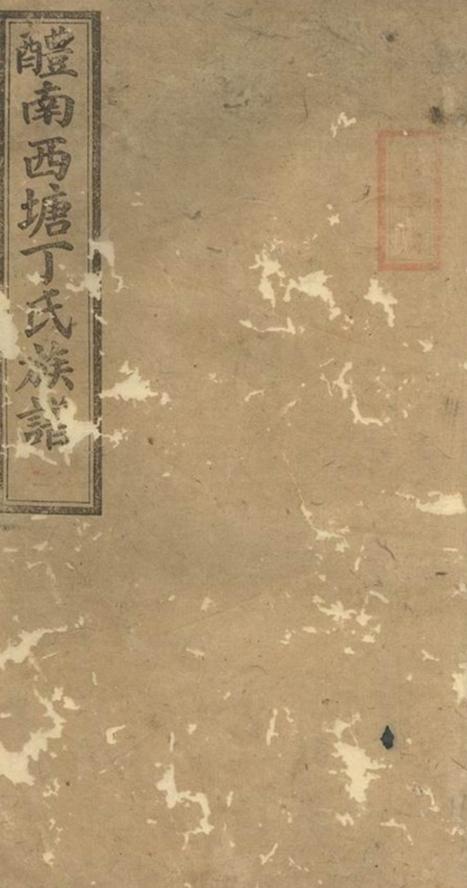 醴南西塘丁氏族譜